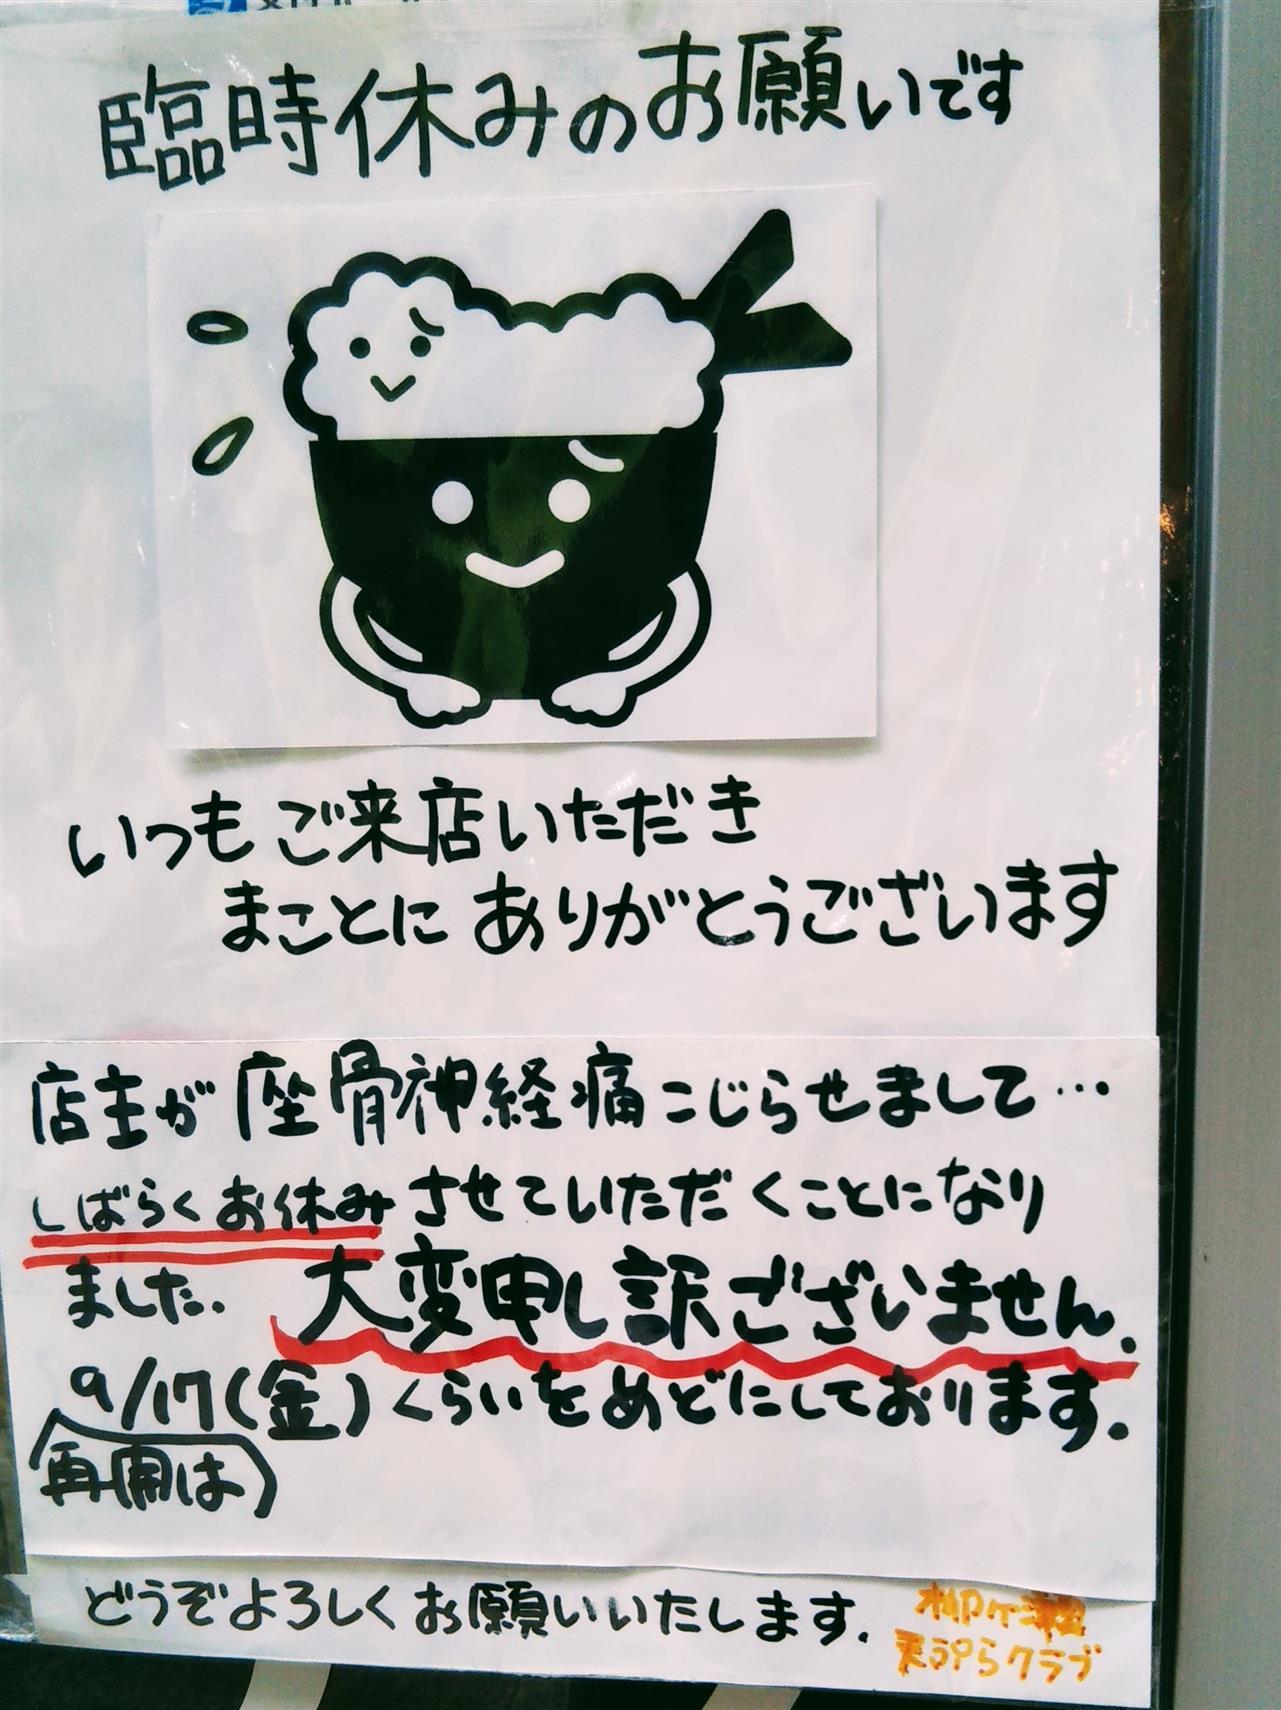 臨時休みのお願いです
いつもご来店いただき
まことにありがとうございます
店主が座骨神経痛こじらせまして…
しばらくお休みさせていただくことになり
ました. 大変申し訳ございません.
9/17(金)くらいをめどにしております.
再開は
どうぞよろしくお願いいたします.
天ぷらクラブ